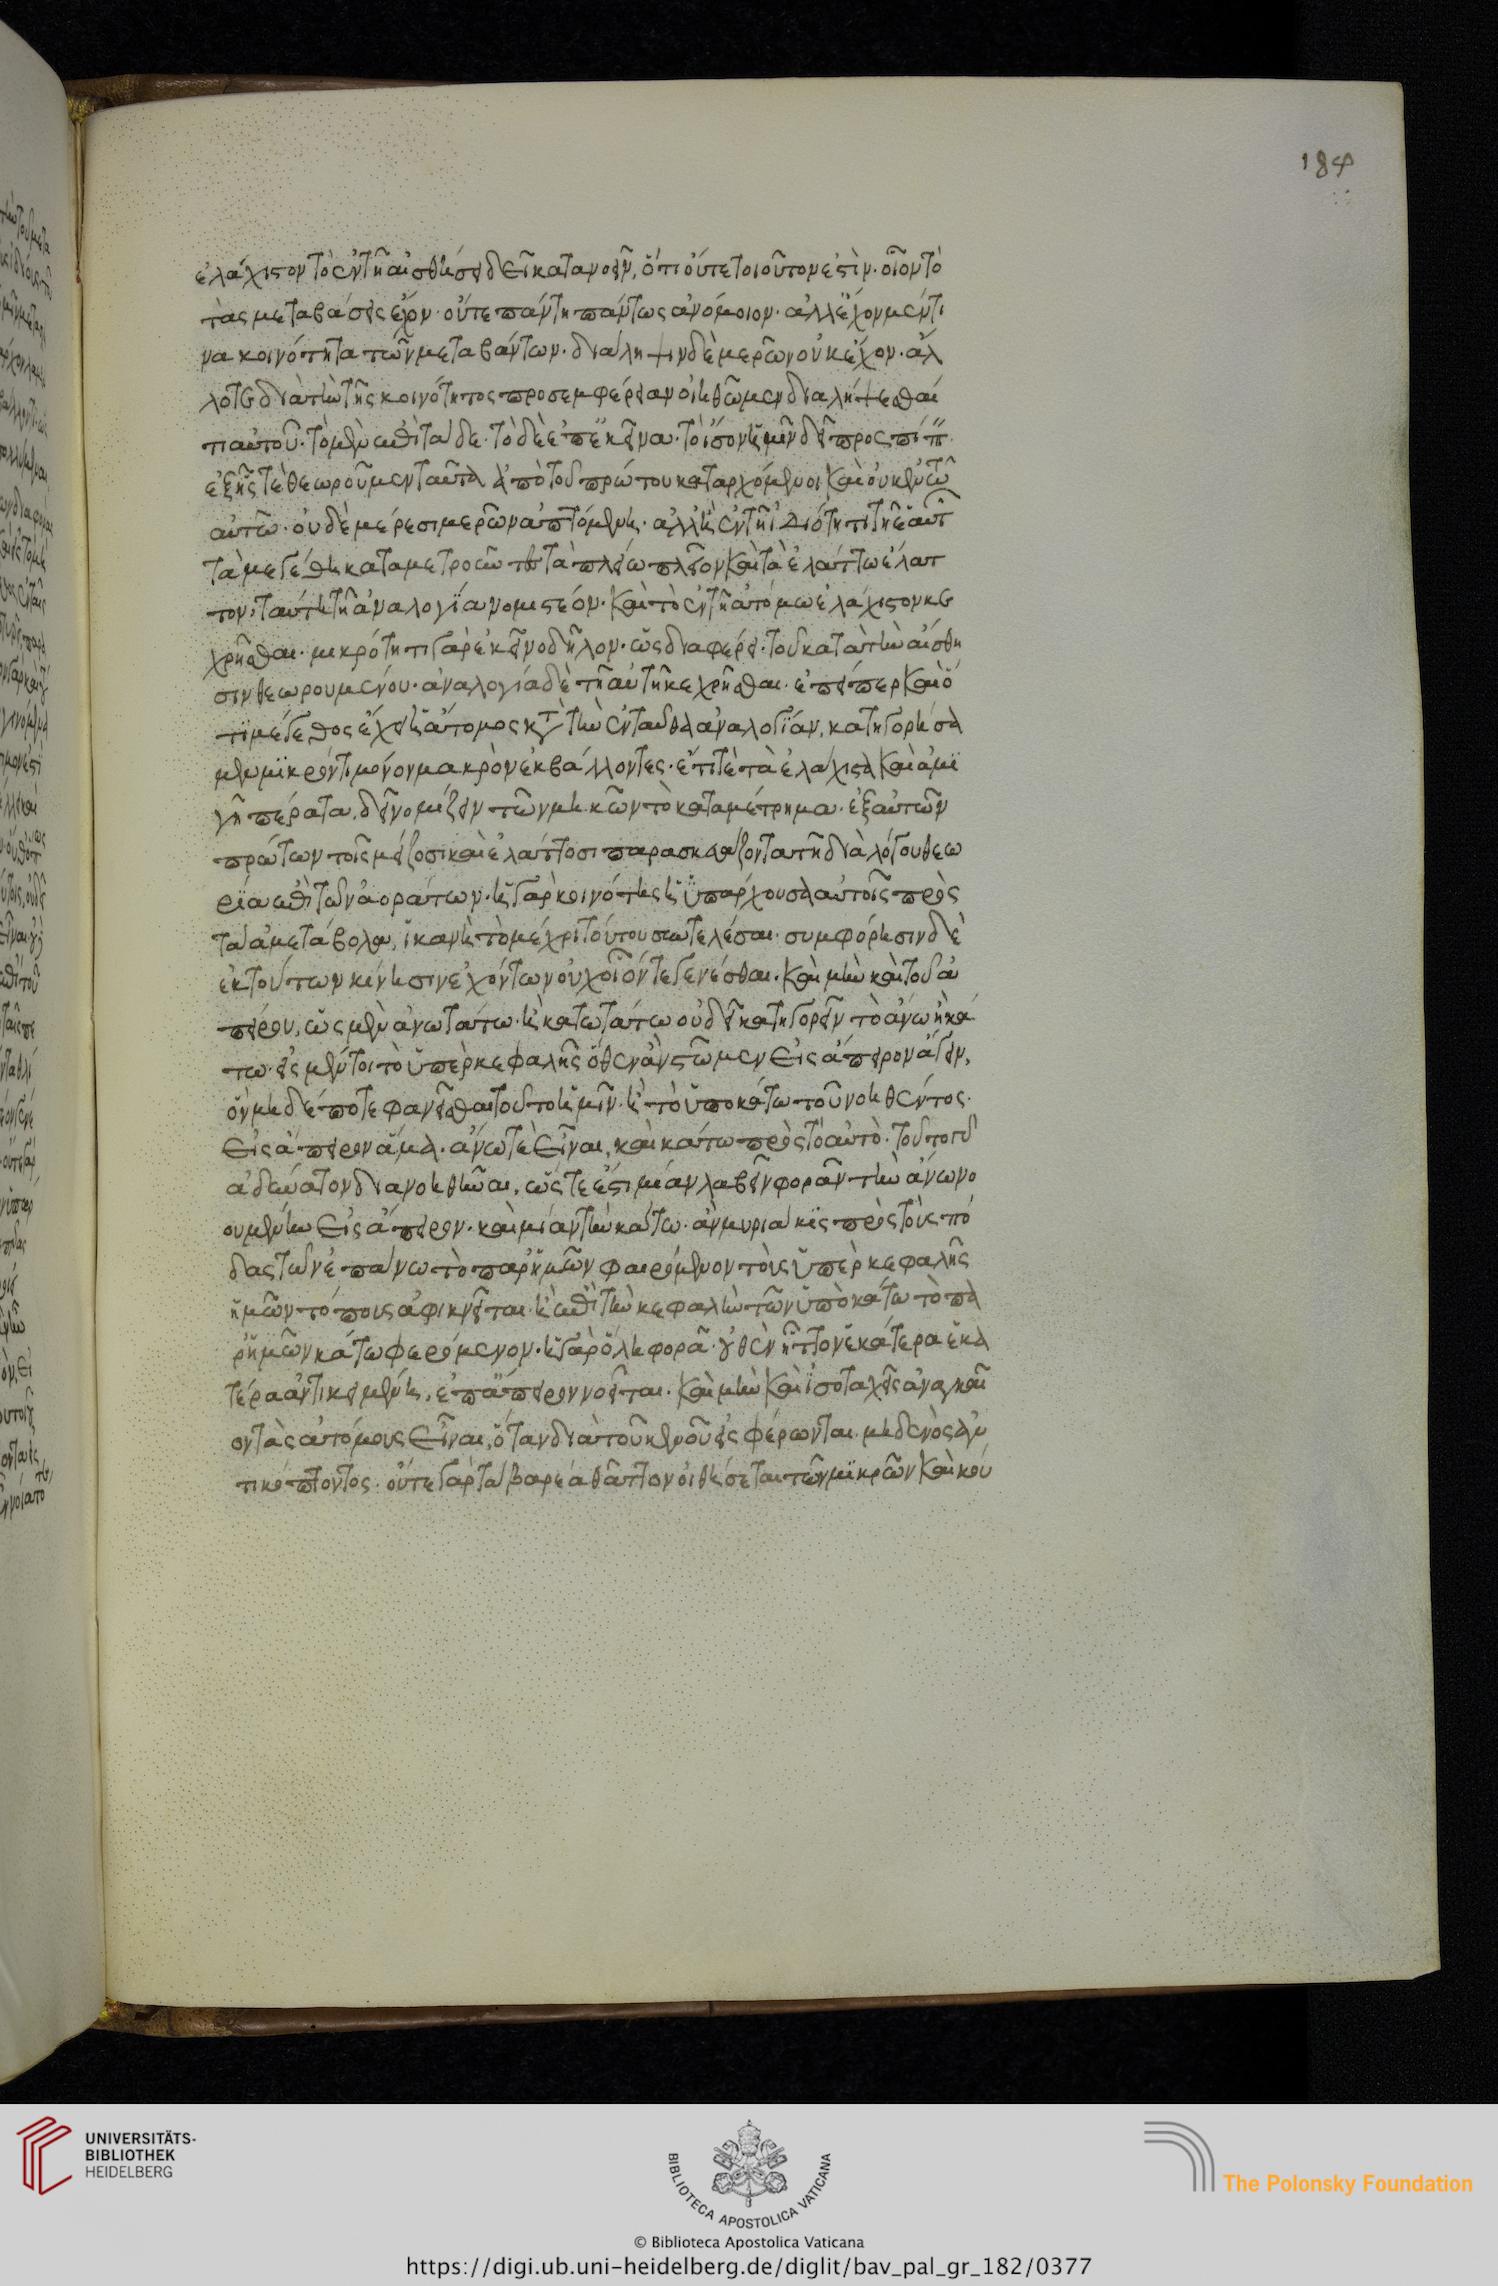 184
ἐλάχιστον τὸ ἐν τῆ αἰσθήσει δεῖ κατανοεῖν, ὅτι οὔτε τοιοῦτον ἐστὶν· οἷον τὸ
τὰς μεταβάσεις ἔχον· οὔτε πάντη πάντως ἀνόμοιον· ἀλλ' ἔχον μέν τι
να κοινότητα τῶν μεταβάντων· διάληψιν δὲ μερῶν οὐκ ἔχον· ἀλ
λ' ὅτε διὰ τὴν τῆς κοινότητος προσεμφέρειαν οἰηθῶμεν διαλήψεσθαί
τι αὐτοῦ· τὸ μὲν ἐπὶ τάδε· τὸ δὲ ἐπέκεινα· τὸ ἴσον ἡμῖν δεῖ προσπίπ.
ἑξῆς τὲ θεωροῦμεν ταῦτα ἀπὸ τοῦ πρώτου καταρχόμενοι καὶ οὐκ ἐν τῶ
αὐτῶ· οὐδὲ μέρεσι μερῶν ἁπτόμενη· ἀλλ' ἢ ἐν τῆ ἰδιότητι τῆ ἑαυτ
τὰ μεγέθη καταμετροῦν τὰ πλείω πλεῖον καὶ τὰ ἐλάττω ἔλατ
τον· ταύτη τῆ ἀναλογία νομιστέον· καὶ τὸ ἐν τῆ ἀτόμω ἐλάχιστον κε
χρῆσθαι· μικρότητι γὰρ ἐκεῖνο δῆλον· ὡς διαφέρει· τοῦ κατὰ τὴν αἴσθη
σιν θεωρουμένου· ἀναλογία δὲ τῆ αὐτῆ κεχρῆσθαι· ἐπείπερ καὶ ὅ
τι μέγεθος ἔχει ἡ ἄτομος κατὰ τὴν ἐνταῦθα ἀναλογίαν, κατηγορήσα
μεν μικρόν τι μόνον μακρὸν ἐκβάλλοντες· ἔτι τὲ τὰ ἐλάχιστα καὶ ἀμι
γῆ πέρατα, δεῖ νομίζειν τῶν μηκῶν τὸ καταμέτρημα· ἐξ αὐτῶν
πρώτων τοῖς μείζοσι καὶ ἐλάττοσι παρασκευάζοντα τῆ διὰ λόγου θεω
ρία ἐπὶ τῶν ἀοράτων· ἡ γὰρ κοινότης ἡ ὑπάρχουσα αὐτοῖς πρὸς
τὰ ἀμετάβολα, ἱκανὴ τὸ μέχρι τούτου συντελέσαι· συμφόρησιν δὲ
ἐκ τούτων κίνησιν ἐχόντων οὐχ οἷόν τε γενέσθαι· καὶ μὴν καὶ τοῦ ἀ
πείρου, ὡς μὲν ἀνωτάτω· ἢ κατωτάτω οὐ δεῖ κατηγορεῖν τὸ ἄνω ἢ κά
τω· εἰς μέντοι τὸ ὑπὲρ κεφαλῆς ὅθεν ἂν στῶμεν εἰς ἄπειρον ἄγειν,
ὂν μηδέποτε φανεῖσθαι τοῦτο ἡμῖν· ἢ τὸ ὑποκάτω τοῦ νοηθέντος·
εἰς ἄπειρον ἅμα· ἄνω τὲ εἶναι, καὶ κάτω πρὸς τὸ αὐτὸ· τοῦτο γὰρ
ἀδύνατον διανοηθῆναι, ὥστε ἔστι μίαν λαβεῖν φορὰν τὴν ἄνω νο
ουμένην εἰς ἄπειρον· καὶ μίαν τὴν κάτω· ἂν μυριάκις πρὸς τοὺς πό
δας τῶν ἐπάνω τὸ παρ' ἡμῶν φαιρόμενον τοὺς ὑπὲρ κεφαλῆς
ἡμῶν τόπους ἀφικνεῖται· ἢ ἐπὶ τὴν κεφαλὴν τῶν ὑποκάτω τὸ πα
ρ' ἡμῶν κάτω φερόμενον· ἡ γὰρ ὅλη φορὰ· οὐθὲν ἧττον ἑκάτερα ἑκα
τέρα ἀντικειμένη, ἐπ' ἄπειρον νοεῖται. καὶ μὴν καὶ ἰσοταχεῖς ἀναγκαῖ
ον τὰς ἀτόμους εἶναι, ὅταν διὰ τοῦ κενοῦ εἰς φέρωνται· μηδενὸς ἀν
τικόπτοντος· οὔτε γὰρ τὰ βαρέα θᾶττον οἰθήσεται τῶν μικρῶν καὶ κού
UNIVERSITÄTS-
BIBLIOTHEK
HEIDELBERG
BIBLIOTECA APOSTOLICA VATICANA
The Polonsky Foundation
© Biblioteca Apostolica Vaticana
https://digi.ub.uni-heidelberg.de/diglit/bav_pal_gr_182/0377